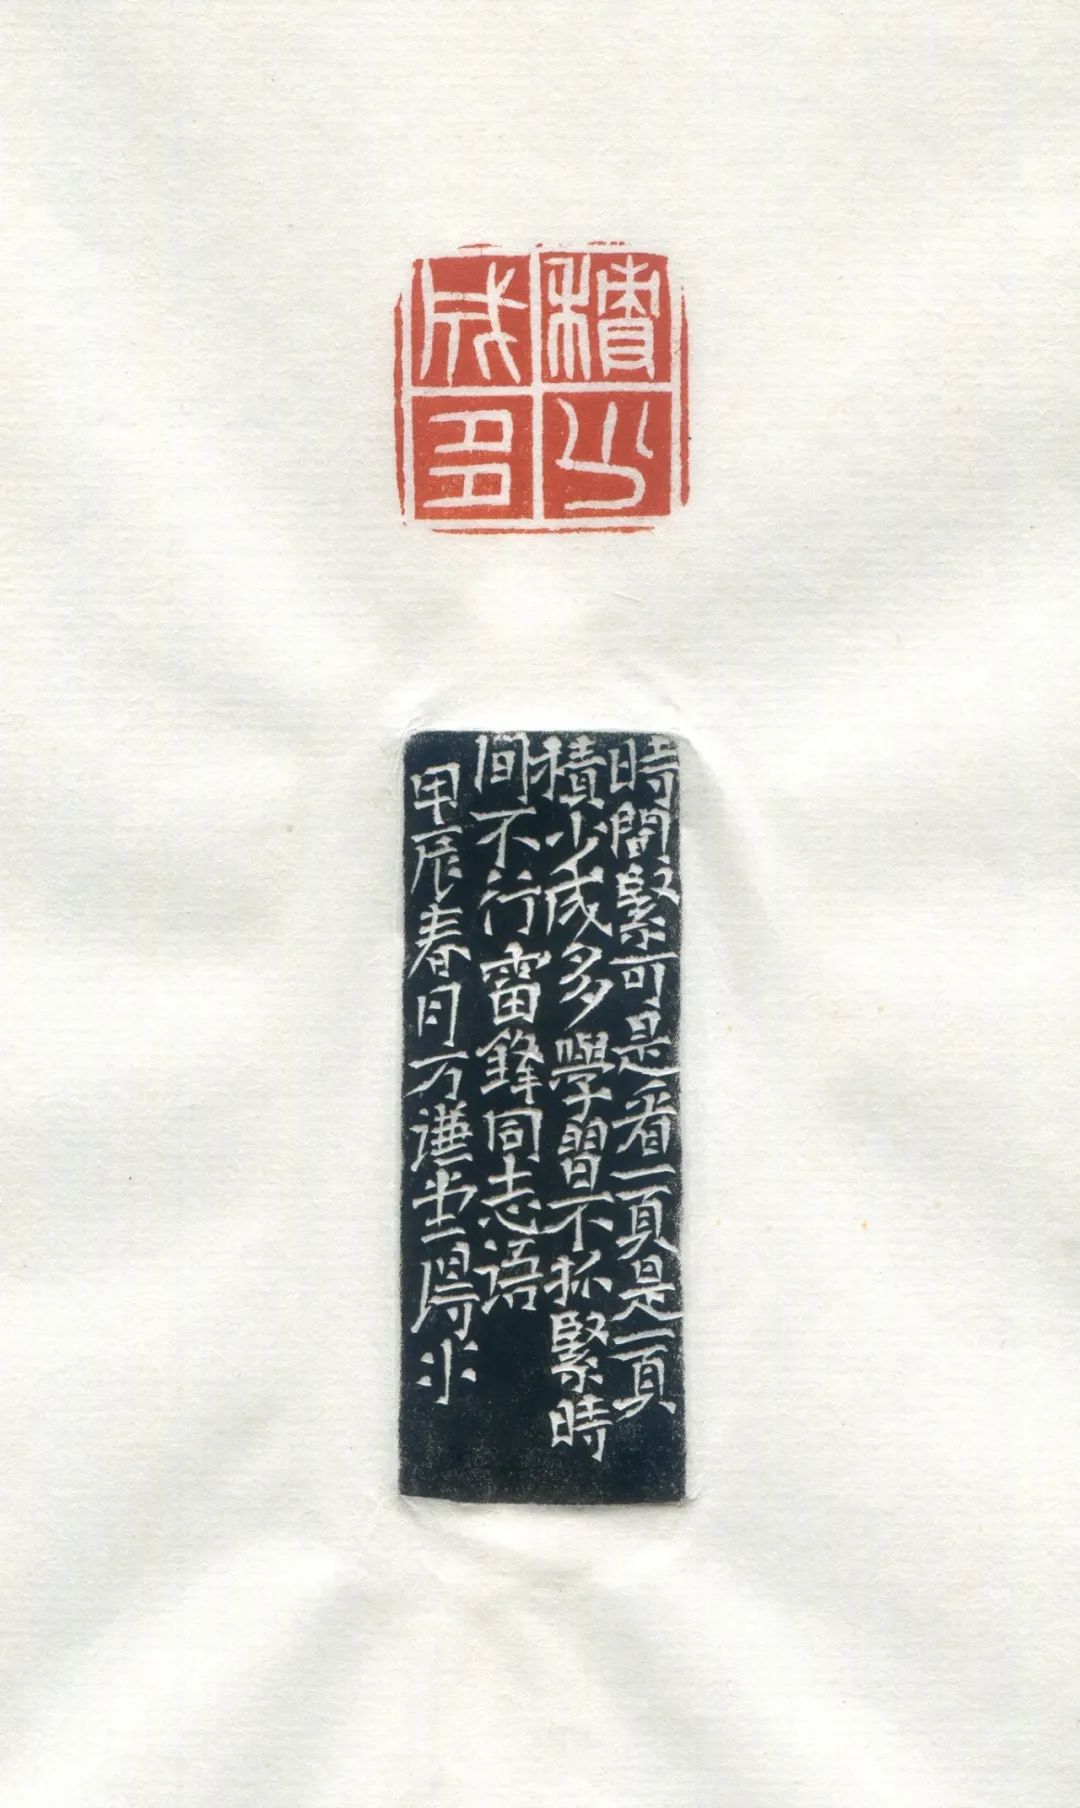 積少
成多
時間緊可是看一頁是一頁
積少成多學習不抓緊時
間不行雷鋒同志语
甲辰春月